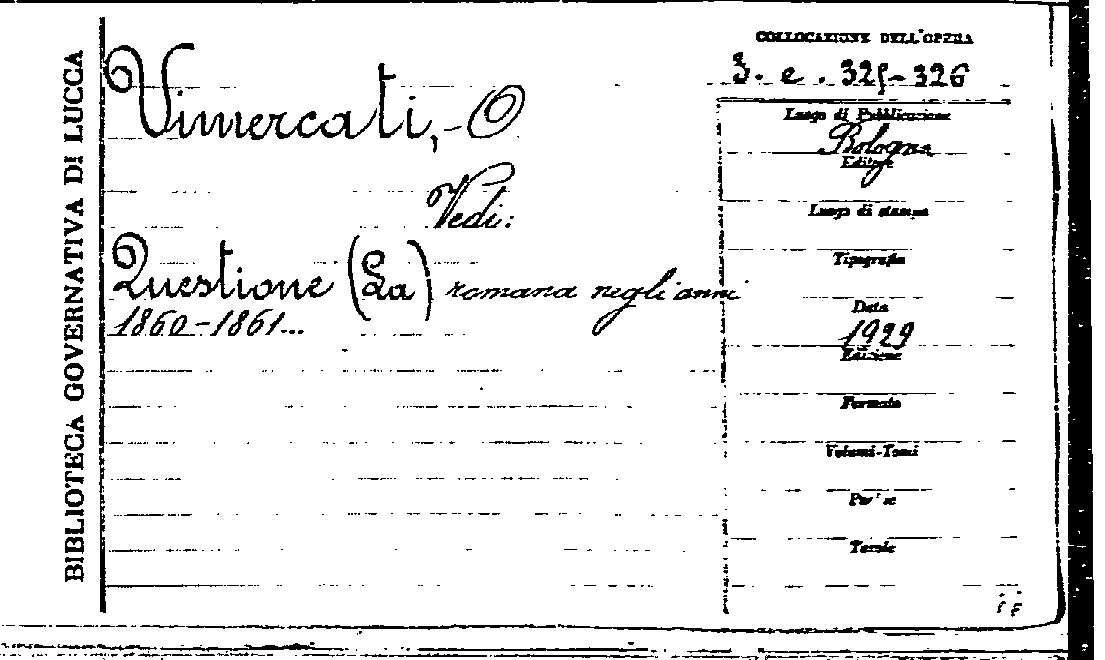 BIBLIOTECA GOVERNATIVA DI LUCCA
Vimercati, O
Vedi:
Questione (La) romana negli anni
1860-1861...
COLLOCAZIONE DELL'OPERA
3. e. 325-326
Luogo di Pubblicazione
Bologna
Editore
Luogo di stampa
Tipografia
Data
1929
Edizione
Formato
Volumi-Tomi
Tavole